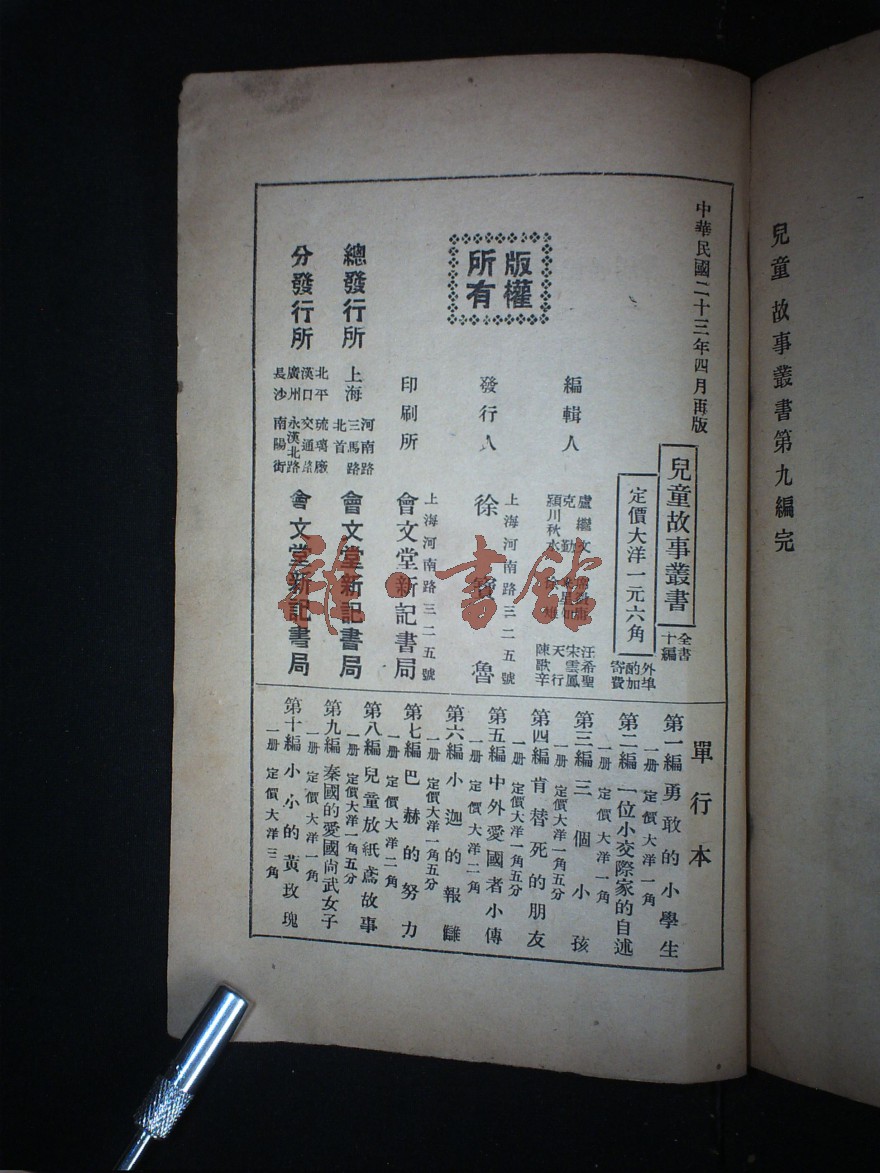 兒童故事叢書第九編完
中華民國二十三年四月再版
兒童故事叢書
全書十編
定價大洋一元六角
外埠酌加寄費
編輯人
盧繼文
克勤
潁川秋水
汪希聖
宋雲鳳
天行
陳歌辛
版權所有
發行人
徐寶魯
上海河南路三二五號
印刷所
會文堂新記書局
上海河南路三二五號
總發行所
上海
河南路
三馬路
北首
會文堂新記書局
分發行所
北平 琉璃廠
漢口 交通路
廣州 永漢北路
長沙 南陽街
會文堂新記書局
單行本
第一編 勇敢的小學生
一冊 定價大洋一角
第二編 一位小交際家的自述
一冊 定價大洋一角
第三編 三個小孩
一冊 定價大洋一角五分
第四編 肯替死的朋友
一冊 定價大洋一角五分
第五編 中外愛國者小傳
一冊 定價大洋二角
第六編 小迦的報讎
一冊 定價大洋一角五分
第七編 巴赫的努力
一冊 定價大洋二角
第八編 兒童放紙鳶故事
一冊 定價大洋一角五分
第九編 秦國的愛國尚武女子
一冊 定價大洋一角
第十編 小小的黃玫瑰
一冊 定價大洋三角
雜·書館